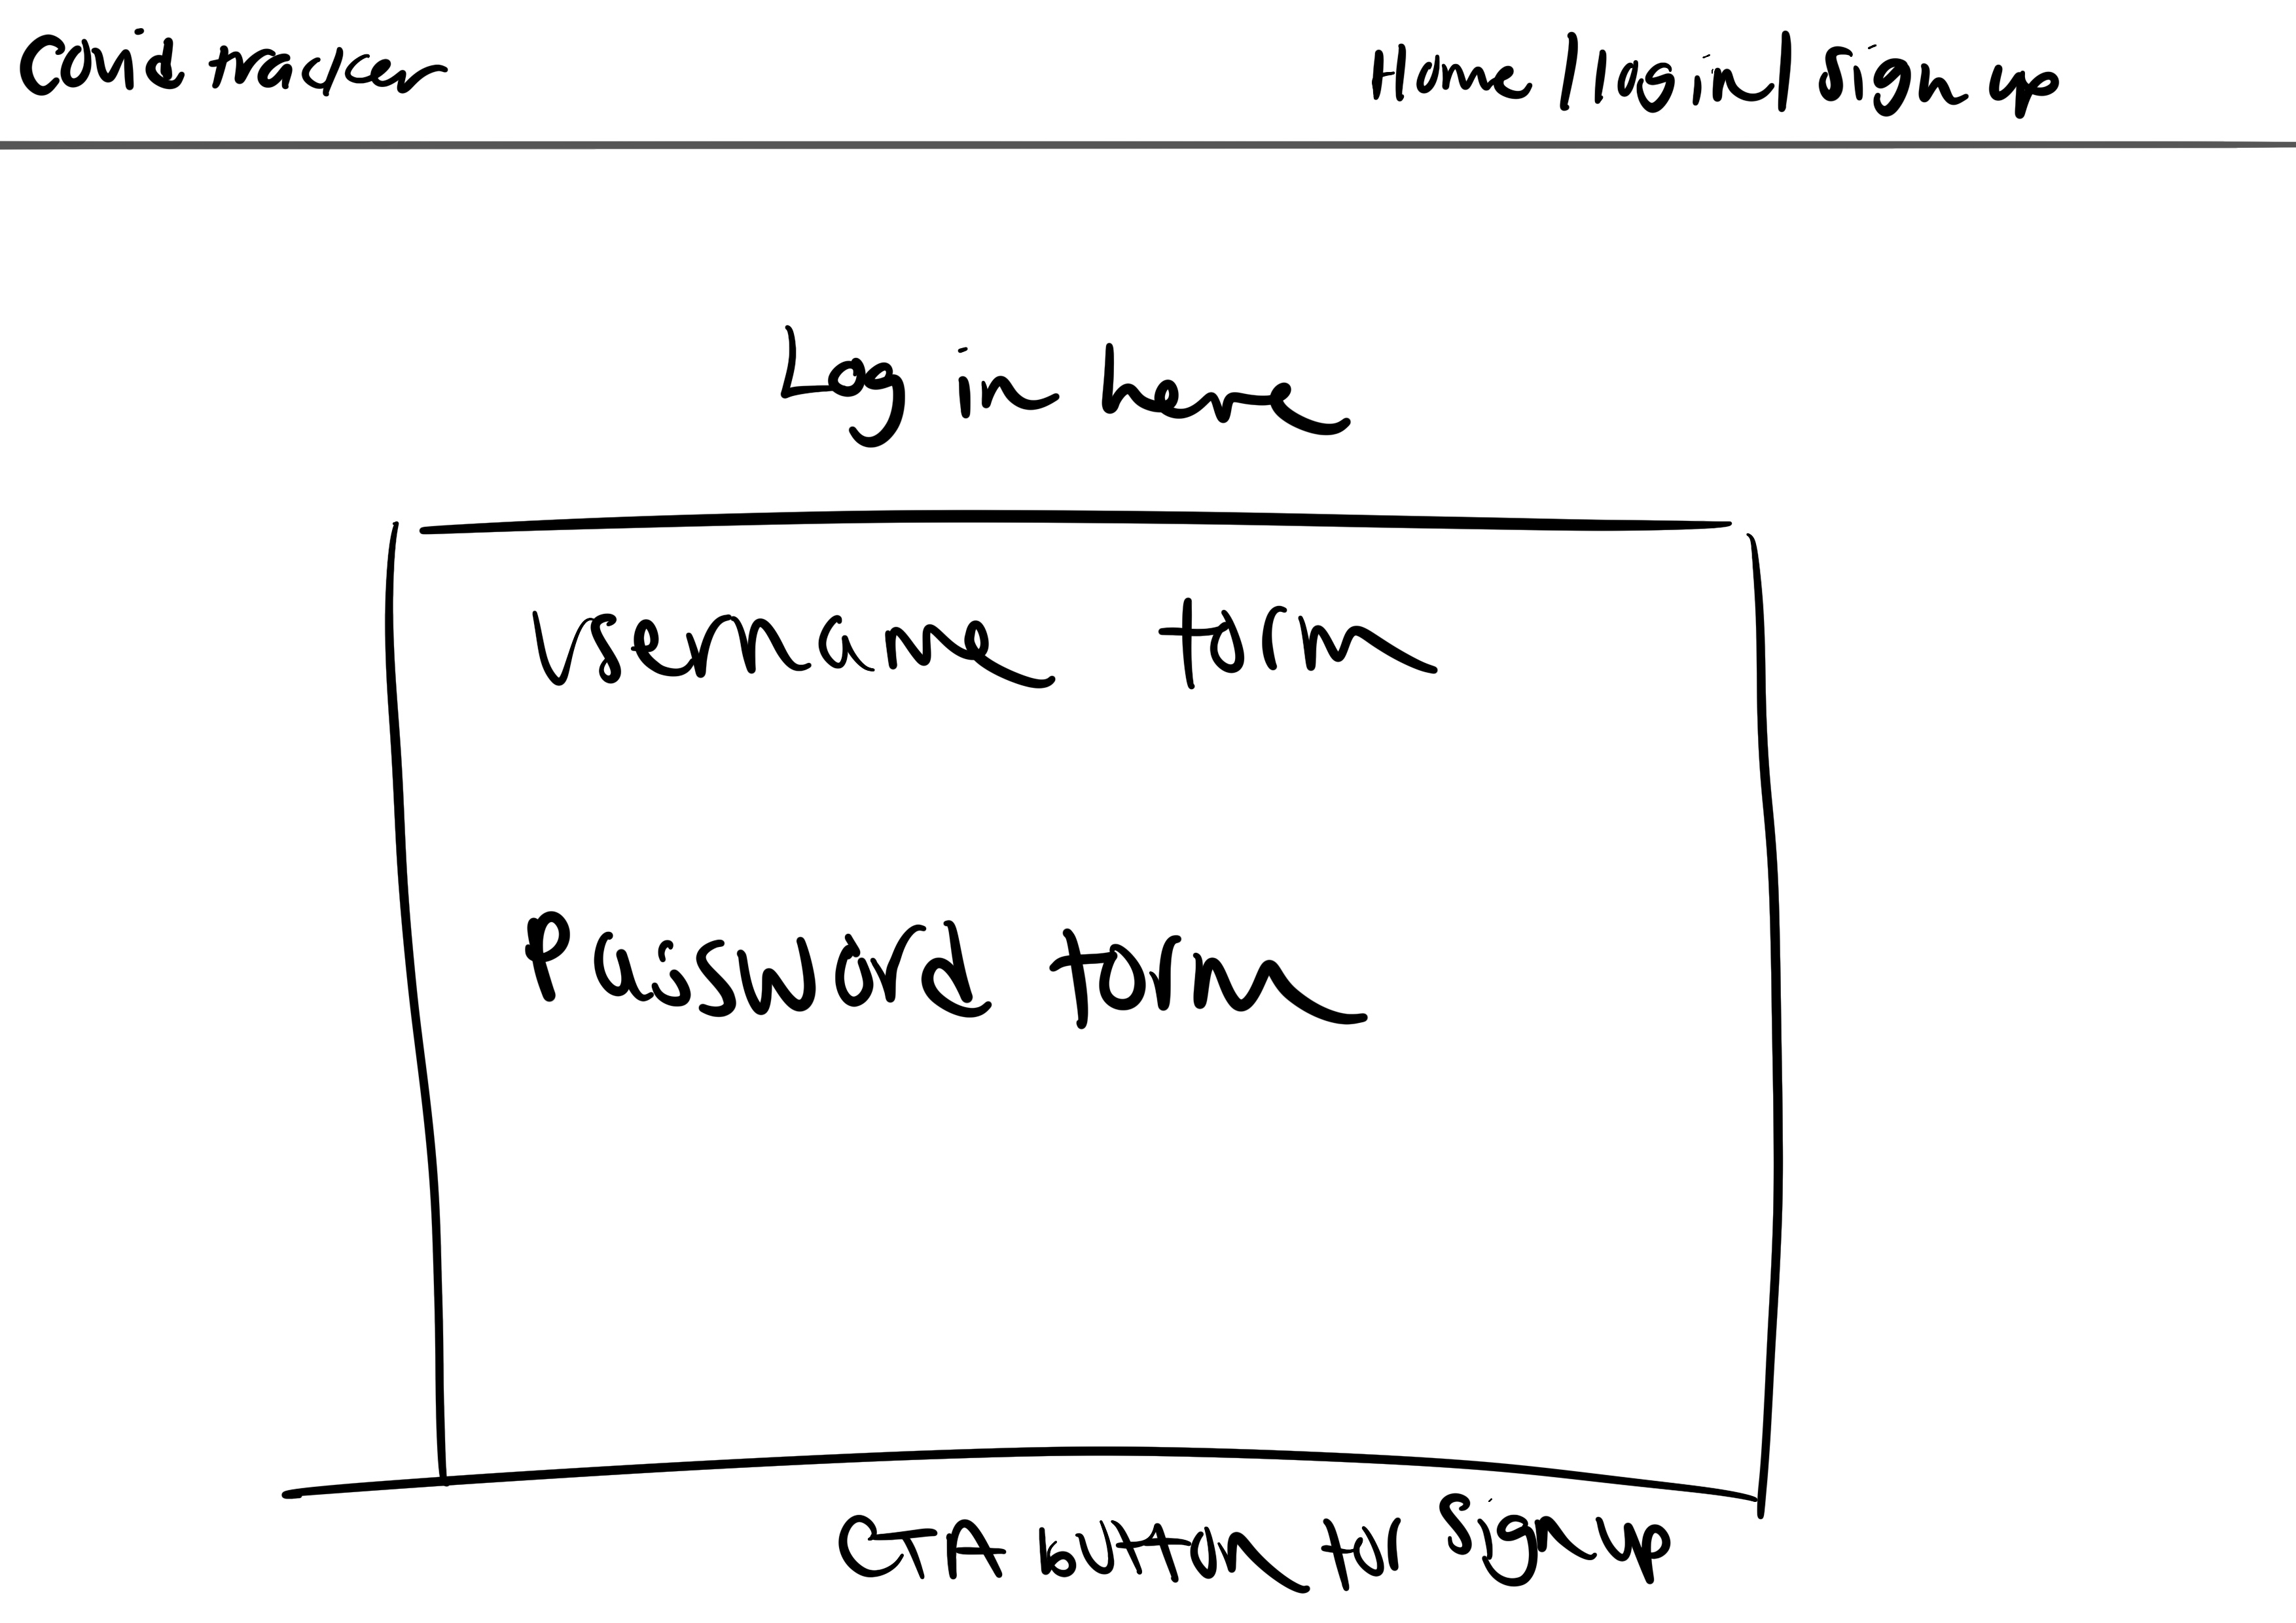 Covid tracker
Home / log in / Sign up
Log in here
Username form
Password form
CTA button for Sign up